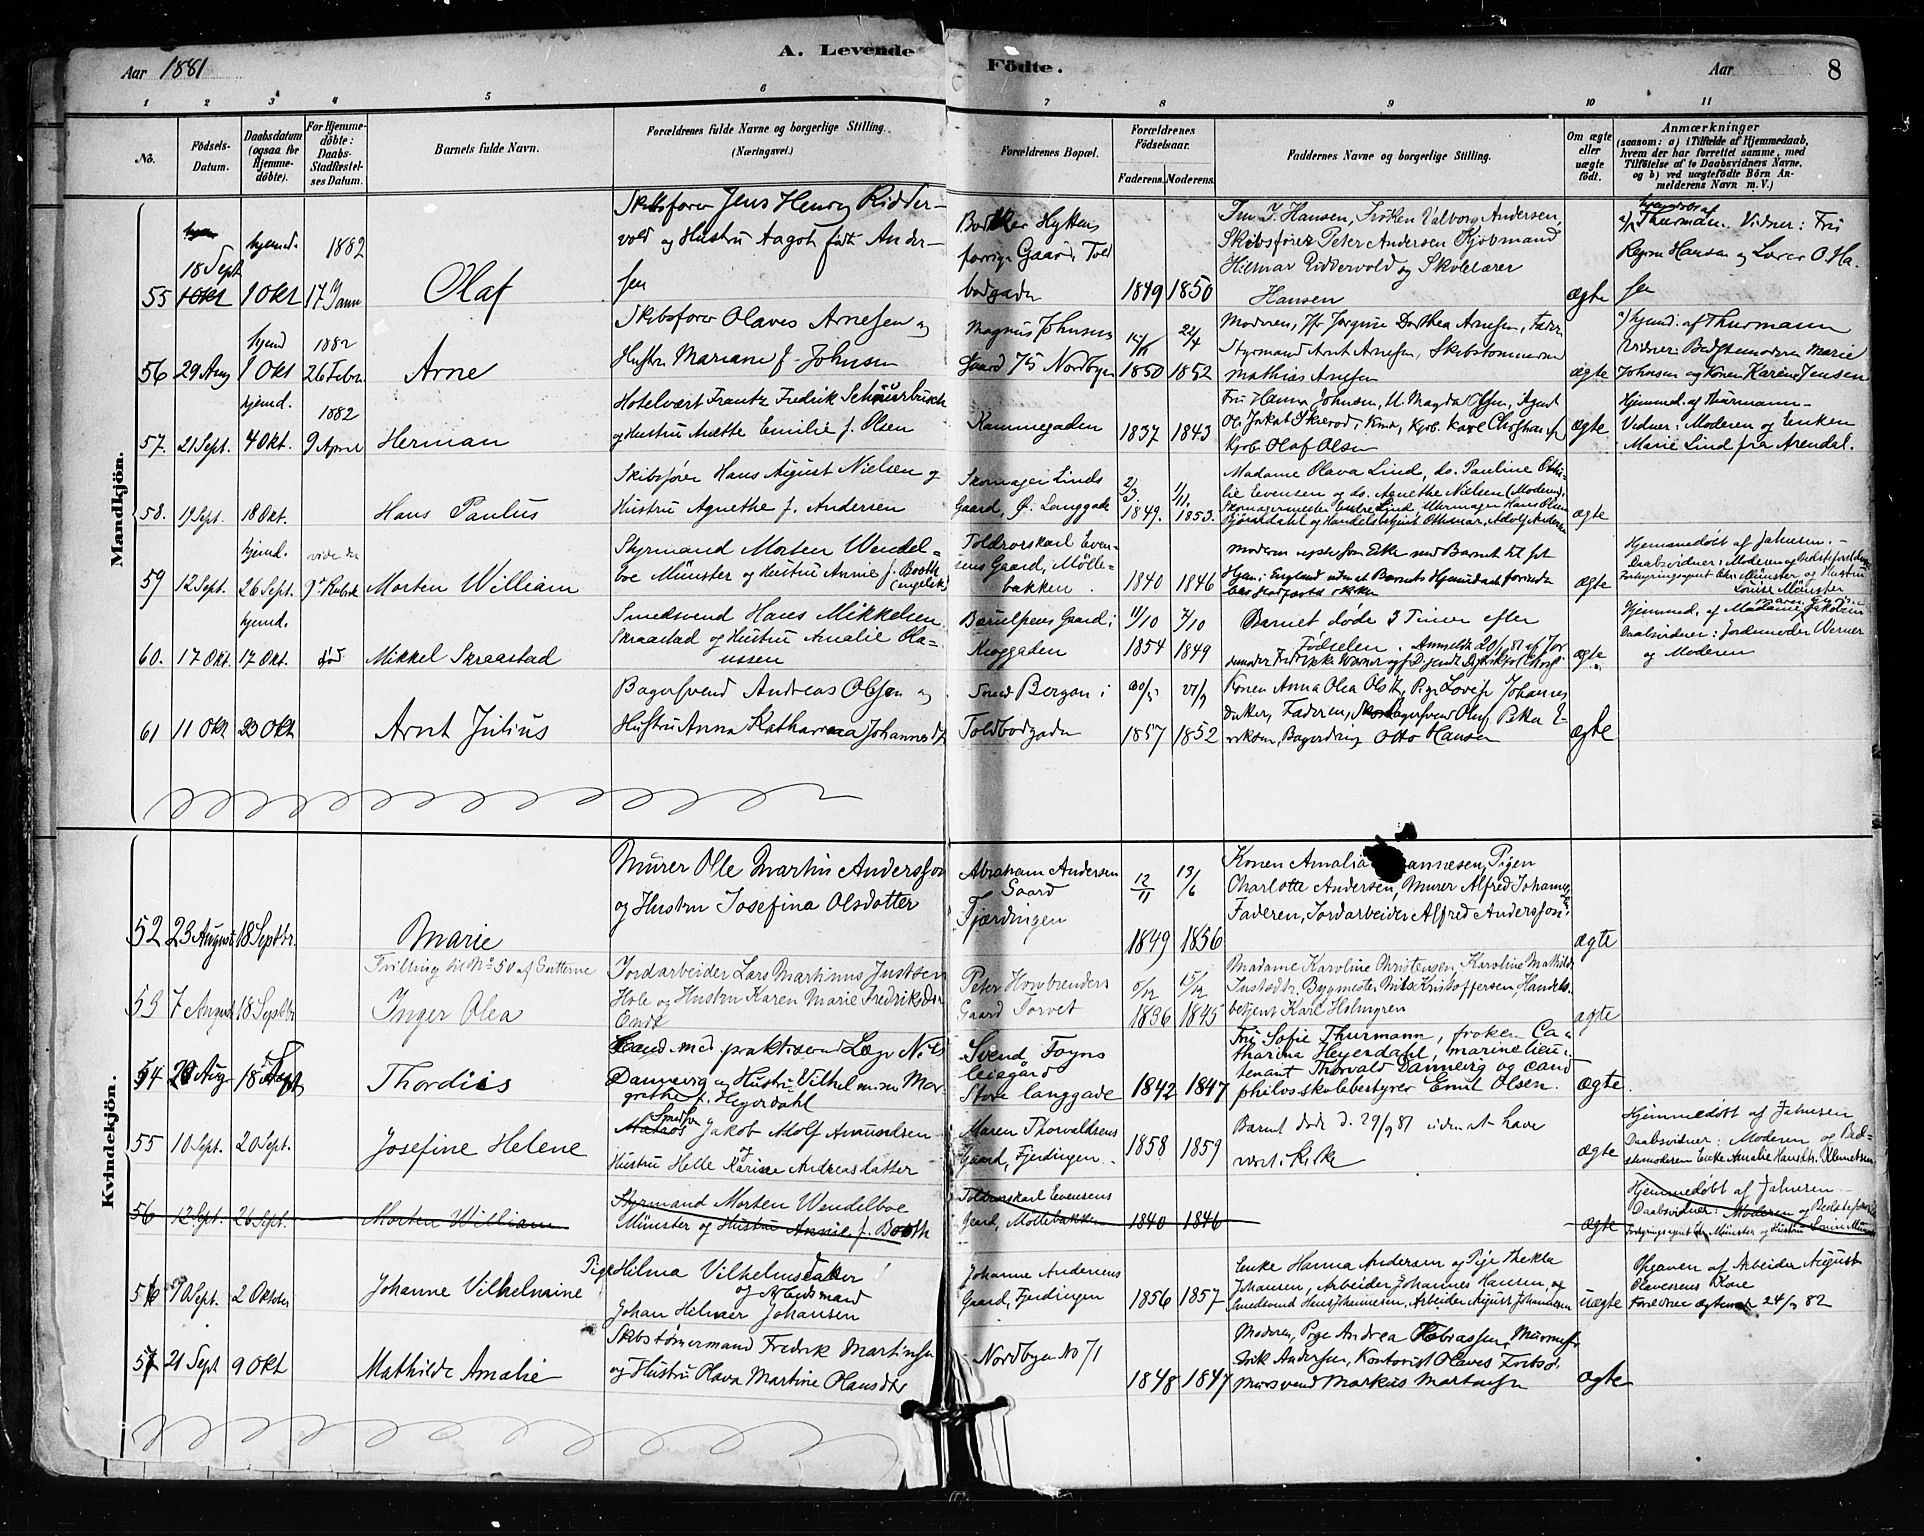 A. Levende Födte.
Aar 1881
Aar 8
1 2 3 4 5 6 7 8 9 10 11
No.
Födsels-Datum.
Daabsdatum (ogsaa for Hjemme-döbte).
For Hjemme-döbte: Daabs-Stadfæstel-ses Datum.
Barnets fulde Navn.
Forældrenes fulde Navne og borgerlige Stilling. (Næringsvei.)
Forældrenes Bopæl.
Forældrenes Födselsaar.
Faderens. Moderens.
Faddernes Navne og borgerlige Stilling.
Om ægte eller uægte födt.
Anmærkninger
(saasom: a) i Tilfælde af Hjemmedaab, hvem der har forrettet samme, med Tilföielse af to Daabsvidners Navne, og b) ved uægtefödte Börn An-melderens Navn m. V.)
Mandkjön.
55 18 Sept 1 Okt hjemd. 1882 17 Jann Olaf
Skibsfører Jens Henry Ridder-
vold og Hustru Aagot født Ander-
sen
Hyttens
forrige Gaard, Told
bodgaden
1849 1850
Fru J. Hansen, Frøken Valborg Andersen,
Skibsfører Peter Andersen Kjøbmand
Hilmar Riddervold og Skolelærer
Hansen
ægte
hjemdøbt af
Thurman. Vidner: Fru
Hansen og Lærer O. Ha-
sen
56 29 Aug 1 Okt hjemd 1882 26 Febr. Arne
Skibsfører Olaves Arnesen og
Hustru Mariane f. Johnsen
Magnus Johnsens
Gaard 75 Nordbyen
1850 1852
Moderen, Jfr Jørgine Dorthea Arnesen,
Styrmand Arnt Arnesen, Skibstømmerm
Mathias Arnesen
ægte
hjemd. af Thurmann
Vidner: Bedstemoderen Marie
Johnsen og Konen Karine Jensen
57. 21 Sept. 4 Okt. hjemd. 1882 9 April Herman
Hotelvært Frantz Fredrik
og Hustru Anette Emilie f. Olsen
Kammegaden
1837 1843
Fru Hanna Johnsen, Magda Olsen, Agent
Kjøb. Olaf Olsen
ægte
Hjemmed. af Thurmann-
Vidner: Moderen og Enken
Marie Lind fra Arendal.
58. 19 Sept. 18 Okt. Hans Paulus
Skibsfører Hans August Nielsen og
Hustru Agnethe f. Andersen
Skomager Linds
Gaard, Ø. Langgade
1849. 1853.
Madame Olava Lind, do. Pauline Othi-
lie Evensen og do. Agnethe Nielsen (Moderen),
Skomagermester Endre Lind, Uhrmager Hans Olsen
Bjørndahl og Handelsbetjent Othmar Adolf Andersen
ægte
59 12 Sept. 26 Sept. hjemd. Morten William
Styrmand Morten Wendel-
boe Münster og Hustru Annie f. Booth
(engelsk)
Toldrorskarl Even-
sens Gaard, Mølle-
bakken.
1840 1846
ægte
Hjemmedøbt af Jahnsen.-
Daabsvidner: Moderen og Bedsteforældrene
Münster og Hustru
Louise Münster
60. 17 Okt. 17 Okt. hjemd. død Mikkel Skraastad
Smedsvend Hans Mikkelsen
Skraastad og Hustru Amalie Ola-
ussen
Gaard i
Kroggaden
11/10 1854 7/10 1849
Barnet døde 3 Timer efter
Fødselen.
ægte
Hjemmed. af Madame Jakobsen
Daabsvidner: Jordemoder Werner
og Moderen
61 11 Okt 23 Okt Arnt Julius
Bagersvend Andreas Olsen og
Hustru Anna Katharina Johannesdt
Smed Bergan i
Toldbodgaden
1857 1852
Konen Anna Olea Pige Lovise Johannes
datter, Faderen, Bagersvend Oluf Peter E-
riksen, Bagerdreng Otto Hansen
ægte
Kvindekjön.
52 23 August 18 Septbr. Marie
Murer Ole Martin Andersson
og Hustru Josefina Olsdotter
Abraham Andersen
Gaard
Fjærdingen
12/11 1849 19/6 1856
Konen Amalia Johannesen, Pigen
Charlotte Andersen, Murer Alfred Johannes
Faderen, Jordarbeider Alfred Andersson.
ægte
Tvilling til No 50 af Gutterne
53 7 August 18 Septbr Inger Olea
Jordarbeider Lars Martinus Justsen
Hole og Hustru Karen Marie Fredriksdtr
Peter Hornbrenders
Gaard Torvet
1836 15/12 1845
Madame Karoline Christensen, Karoline Mathilde
Justsdtr. Bygmester Nils Kristoffersen, Handels-
betjent Karl Holmgren
ægte
54 20 Aug 18 Sept Thordiis
Cand. med praktiserend Læge Nils
Dannevig og Hustru Vilhelmine Mar-
grethe f. Heyerdahl
Svend Foyns
leiegård
Store langgade
1842 1847
Fru Sofie Thurmann, frøken Ca-
tharina Heyerdahl, marinelieu-
tenant Thorvald Dannevig og cand
philos skolebestyrer Emil Olsen.
ægte.
55 10 Sept. 20 Sept. Josefine Helene
Matros Jakob Adolf Amundsen
og
Hustru Helle Karine Andreasdatter
Maren Thorvaldsens
Gaard, Fjerdingen.
1858 1859
Barnet døde d. 29/9 81 uden at have
været i Kirke
ægte
Hjemmedøbt af Jahnsen
Daabsvidner: Moderen og Bed-
stemoderen Enke Amalie Hansdtr. Klemetsen
56 12 Sept. 26 Sept. Morten William
Styrmand Morten Wendelboe
Münster og Hustru Annie f. Booth
Toldrorskarl Evensens
Gaard, Møllebakken
1840 1846
ægte
Hjemmedøbt af Jahnsen
Daabsvidner: Moderen og Bedsteforæld
Münster og Hustru Louise Münster
56 9 Sept. 2 Oktober Johanne Vilhelmine
Pige Hilma Vilhelmsdatter
og Arbeidsmand
Johan Helmer Johansen
Johanne Andersens
Gaard, Fjerdingen
1856 1857
Enke Hanna Andersen og Pige Thekla
Johansen, Arbeider Johannes Hansen, og
Smedsvend Hans Johannesen, Arbeider August Johannesen
uægte
Opgaven af Arbeider August
Olavesens Kone
Forældrene ægteviet 24/9 82
57 21 Sept 9 Okt Mathilde Amalie
Skibstømmermand Fredrik Martinsen
og Hustru Olava Martine Olausdtr
Nordbyen No 71
1848 1847
Moderen, Pige Andrea Tobiassen, Murmester
Andersen, Kontorist Olaves
Mursvend Markus Martinsen
ægte